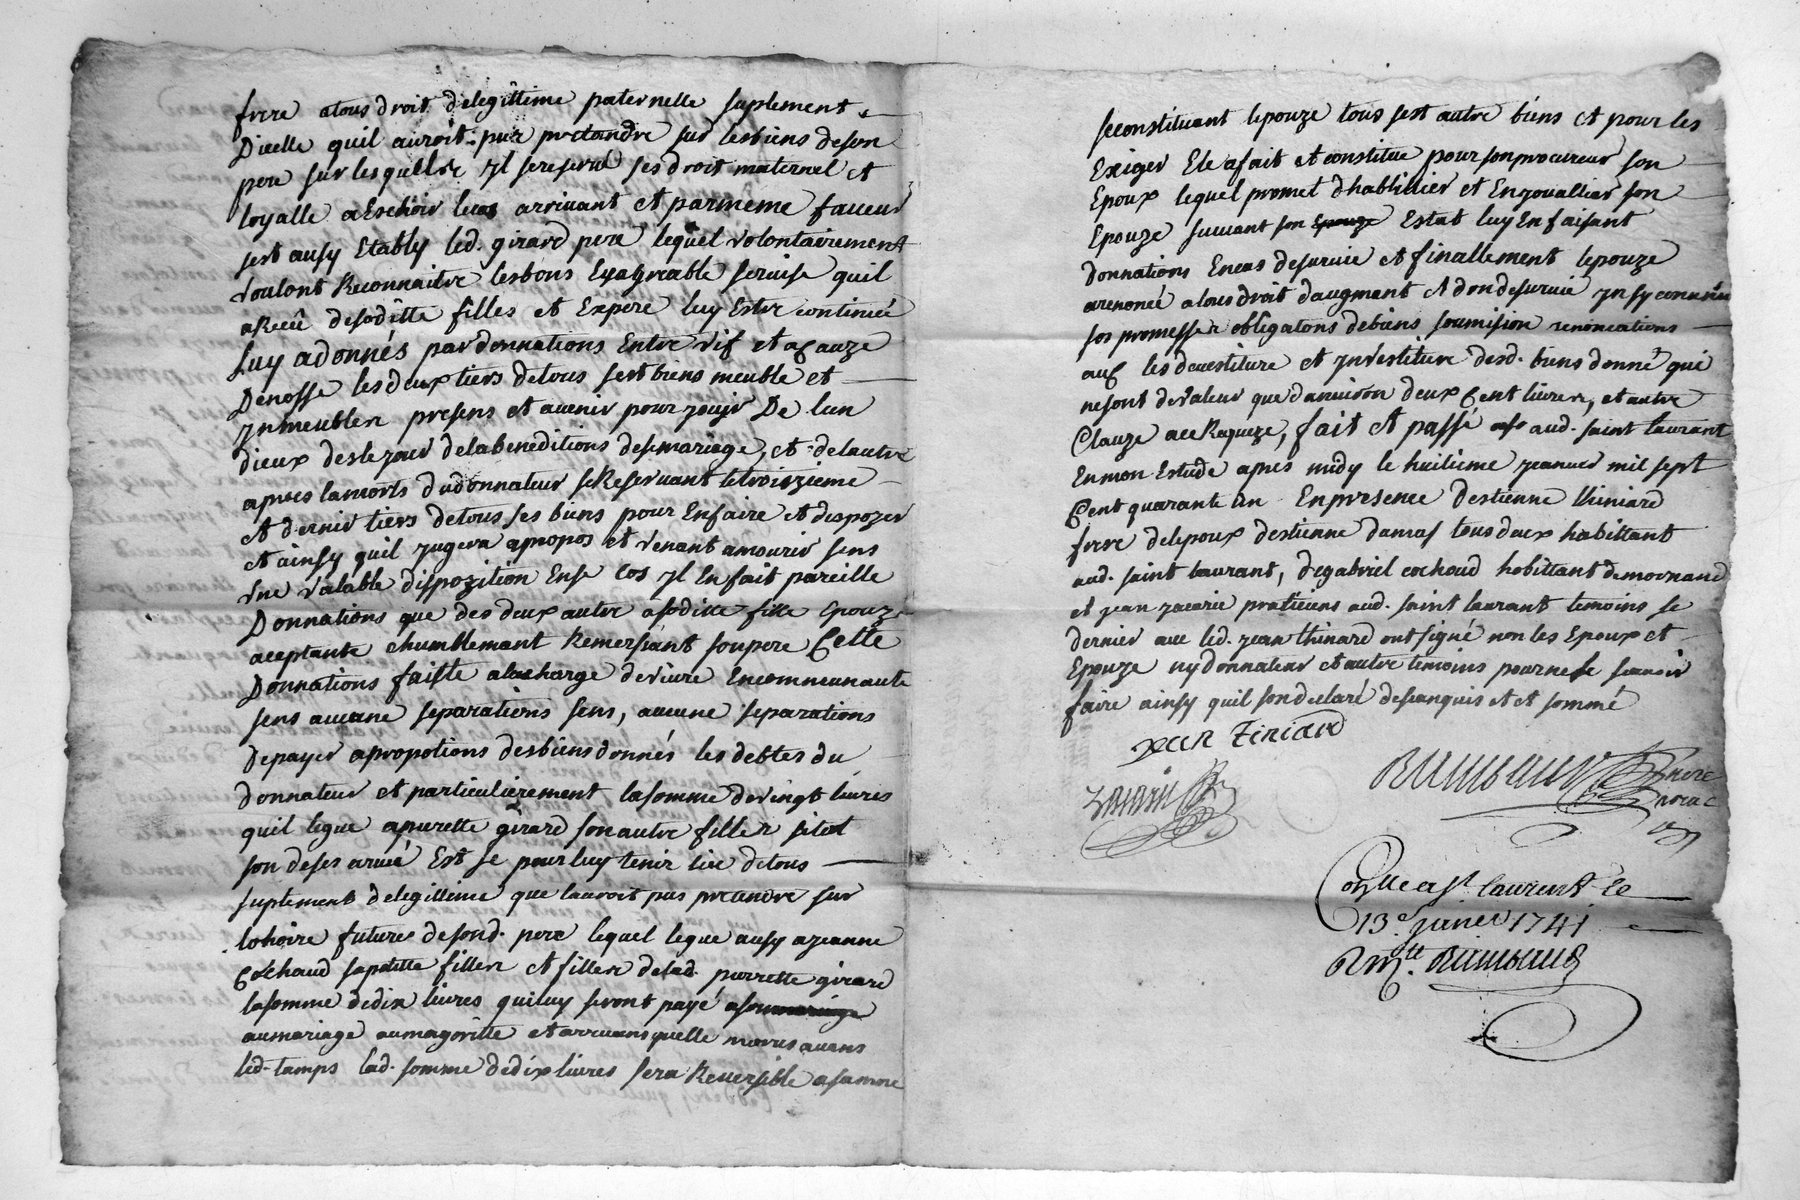 frere atous droit delegittime paternelle suplement
Dicelle quil auroit pue pretandre sur lesbiens deson
pere sur lesquellee yl sereserue ses droit maternel et
loyalle aEschoir leas arriuant et parmeme faueur
sest ausy Etably led. girard pere lequel volontairement
voulont Reconnaitre lesbons Eyagreable seruise quil
aReceu desaditte filles et Expere luy Estre continué
luy adonnés par donnations Entre vif et acauze
Denosse les deux tiers detous sest biens meuble et
ynmeubles presens et auenir pour jouyr De lun
dieux desle jour delabeneditions desemariage, et delautre
apres lamorts dudonnateur seReseruant letroizieme
et dernier tiers detous ses biens pour Enfaire et dispozer
et ainsy quil jugera apropos et venant amourir sens
vne valable dispozition Ense cas yl Enfait pareille
Donnations que des deux autre asaditte fille Epouze
aceptante ehumblemant Remersiant sonpere Cette
Donnations faiste alacharge deviure Encommeunaute
sens aucune separations sens, aucune separations
depayer apropotions desbiens donnés les debtes du
donnateur et particulierement lasomme devingt liures
quil legue apierette girard sonautre filles sitot
son deses arriué Est se pour luy tenir lieu detous
suplement delegittime que lauroit pus pretandre sur
lohoire future desond. pere lequel legue ausy ajeanne
Cochaud sapetitte filles et filles delad. pierrette girard
lasomme dedix liures quiluy seront payé asonmariage
aumariage oumagoritte et arriuans quelle moures auans
led. tamps lad. somme dedix liures sera Reuersible asamere
seconstituant lepouze tous sest autre biens et pour les
Exiger Ele afait et constitue pour sonprocureur son
Epoux lequel promet dhabbilier et Enjouallier son
Epouze suiuant son Epouze Estat luy Enfaisant
donnations Encas desuruie et finallement lepouze
arenoncé atous droit daugment et dondesuruie ynsy conuenu
sos promesses obligations debiens soumision renoncations
auc les deuestiture et ynvestiture desd. biens donné qui
nesont devaleur que danuiron deux Cent liures, et autre
Clauze ace Requize, fait et passé aud. saint laurant
Enmon Estude apres midy le huitieme jeanuier mil sept
Cent quarante un Enpresence destienne thiniard
frere delepoux destienne damas tous deux habittant
aud. saint laurant, de gabriel cochaud habittant demornand
et jean zacarie praticiens aud. saint laurant temoins se
dernier auec led. jean thinard ont signé non les Epoux et
Epouze ny donnateur et autre temoins pournele scauoir
faire ainsy quil sondeclaré desenquis et et sommé
jean Tiniard
zacarie
Raimbaud
Conlle a st. laurent le
13e janer 1741
R Raimbaud